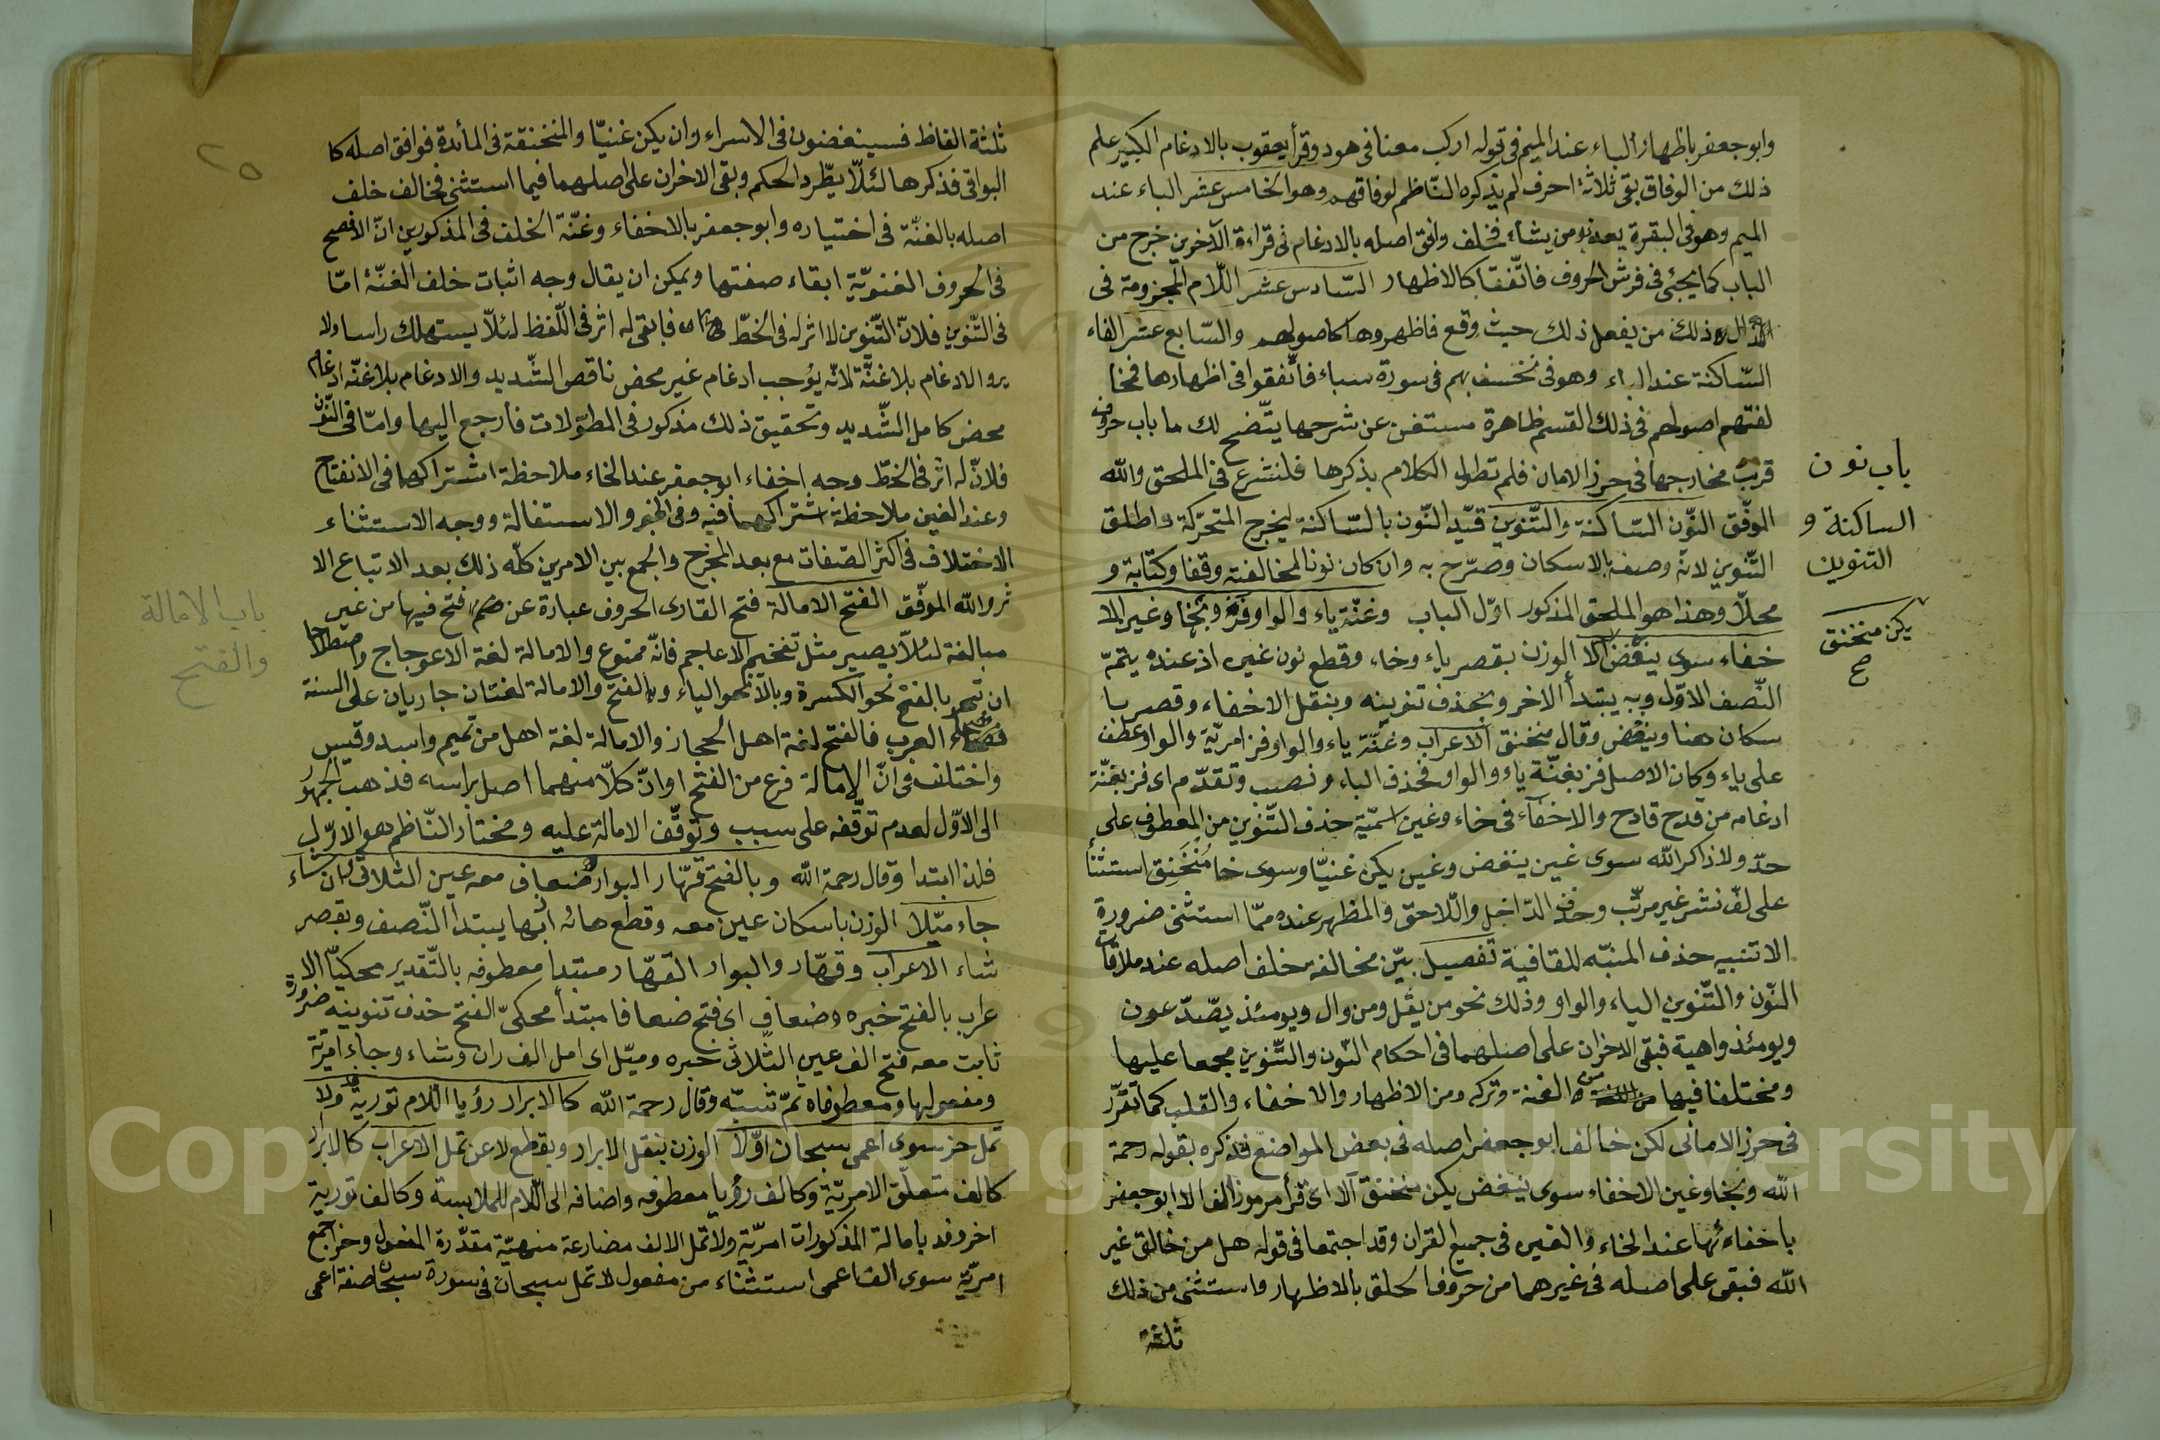 وابو جعفر باظهار الباء عند الميم فى قوله اركب معنا فى هود وقرأ يعقوب بالادغام الكبير علم
ذلك من الوفاق بقى ثلاثة احرف لم يذكره النّاظم لوفاقهم وهو الخامس عشر الباء عند
الميم وهو فى البقرة يعذب من يشاء فخلف وافق اصله بالادغام فى قراءة الآخرين خرج من
الباب كما يجئ فى فرش الحروف فاتّفقا كالاظهار السّادس عشر اللّام المجزومة فى
الذال ذلك من يفعل ذلك حيث وقع فاظهروها كاصولهم والسّابع عشر الفاء
السّاكنة عند الباء وهو فى نخسف بهم فى سورة سباء فاتّفقوا فى اظهارها فمخا
لفتهم اصولهم فى ذلك القسم ظاهرة مستغن عن شرحها يتّضح لك ما باب حروف
قربت مخارجها فى حرز الامان فلم تطول الكلام بذكرها فلنشرع فى الملحق والله
الموفّق النّون السّاكنة والتّنوين قيّد النّون بالسّاكنة ليخرج المتحرّكة واطلق
التّنوين لانّه وصفه بالاسكان وصرّح به وان كان نونا لمخالفته وقفا وكتابة و
محلّا وهذا هو الملحق المذكور اوّل الباب وغنّة ياء والواو فز وبخا وغين الا
خفاء سوى ينغض الا الوزن بقصر ياء وخاء وقطع نون غيره اذ عنده يتمّ
النّصف الاوّل وبه يبتدأ الاخر وبحذف تنوينه وبنقل الاخفاء وقصر با
سكان هنا وينغض وقال منخنق الاعراب وغنّة ياء والواو فز امريّة والواو عطف
على ياء وكان الاصل فز بغنّة ياء والواو فحذف الباء ونصب وتقدّم اى فز بغنّة
ادغامه من قدح قادح والاخفاء فى خاء وغين اسميّة حذف التّنوين من المعطوف على
حدّ ولا ذاكر الله سوى غين ينغض وغين يكن غنيّا وسوى خا مُنْخَنِق استثنا
على لفّ نشر غير مرتّب وحذف الدّاخل واللّاحق والمظهر عنده ممّا استثنى ضرورة
الا تنبيه حذف المنبّه للقافية تفصيل بيّن مخالفة خلف اصله عند ملاقاة
النّون والتّنوين الياء والواو وذلك نحو من يقل ومن وال ويومئذ يصّدّعون
ويومئذ واهية فبقى الاخران على اصلهما فى احكام النّون والتّنوين مجمعا عليها
ومختلفا فيها من الغنة وتركه ومن الاظهار والاخفاء والقلب كما تقرّر
فى حرز الامانى لكن خالف ابو جعفر اصله فى بعض المواضع فذكره بقوله رحمة
الله وبخا وغين الاخفاء سوى ينغض يكن منخنق الا اى قرأ مرموز الف الا ابو جعفر
باخفائها عند الخاء والغين فى جميع القران وقد اجتمعا فى قوله هل من خالق غير
الله فبقى على اصله فى غيرهما من حروف الحلق بالاظهار واستثنى من ذلك
ثلثة
باب نون
الساكنة و
التنوين
يكن منخنق
ح
٢٥
ثلثة الفاظ فسينغضون فى الاسراء وان يكن غنيّا والمنخنقة فى المائدة فوافق اصله كا
البواقى فذكرها لئلّا يطّرد الحكم وبقى الاخران على اصلهما فيما استثنى فخالف خلف
اصله بالغنّة فى اختياره وابو جعفر بالاخفاء وغنّة الخلف فى المذكورين انّ الافصح
فى الحروف الغنويّة ابقاء صفتها ويمكن ان يقال وجه اثبات خلف الغنّة امّا
فى التّنوين فلانّ التّنوين لا اثر له فى الخطّ فابقى له اثر فى اللّفظ لئلّا يستهلك راسا ولا
يرو الادغام بلا غنّة لانّه يوجب ادغام غير محض ناقص التّشديد والادغام بلا غنّة ادغام
محض كامل التّشديد وتحقيق ذلك مذكور فى المطوّلات فارجع اليها وامّا فى النّون
فلانّ له اثر فى الخطّ وجه اخفاء ابو جعفر عند الخاء ملاحظة اشتراكهما فى الانفتاح
وعند الغين ملاحظة اشتراكهما فيه وفى الجهر والاستفالة ووجه الاستثناء
الاختلاف فى اكثر الصّفات مع بعد المخرج والجمع بين الامرين كلّه ذلك بعد الاتباع الا
ثر والله الموفّق الفتح الامالة فتح القارى الحروف عبارة عن فتح فيها من غير
مبالغة لئلّا يصير مثل تفخيم الاعاجم فانّه ممنوع والامالة لغة الاعوجاج واصطلاحا
ان تنحو بالفتح نحو الكسرة وبالالف نحو الياء والفتح والامالة لغتان جاريان على السنة
فصحاء العرب فالفتح لغة اهل الحجاز والامالة لغة اهل من تميم واسد وقيس
واختلف فى انّ الامالة فرع من الفتح او انّ كلّا منهما اصل براسه فذهب الجمهور
الى الاوّل لعدم توقّفه على سبب وتوقّف الامالة عليه ومختار النّاظم هو الاوّل
فلذا ابتدا وقال رحمة الله وبالفتح قهّار البوار ضعاف معه عين الثلاثى ران شاء
جاء ميّلا الوزن باسكان عين معه وقطع هائه ابها يبتدأ النّصف وبقصر
شاء الاعراب وقهّار والبوار القهّار مبتدا معطوفه بالتّقدير محكيّا الا
عراب بالفتح خبره وضعاف اى فتح ضعافا مبتدأ محكىّ الفتح حذف تنوينه ضرورة
ثابت معه فتح الف عين الثّلاثى خبره وميّل اى امل الف ران وشاء وجاء امريّة
ومفعولها ومعطوفاه ثمّ تنبّه وقال رحمة الله كالابرار رؤيا اللّام تورية فد ولا
تمل حز سوى اعمى سبحان اوّلا الوزن بنقل الابرار وبقطع لا عن تمل الاعراب كالابرار
كالف متعلّق الامريّة وكالف رؤيا معطوفه واضافه الى اللّام للملابسة وكالف تورية
اخر وفد بامالة المذكورات امريّة ولا تمل الالف مضارعة منهيّة مقدّرة المفعول وحز اجمع
امريّة سوى الف اعمى استثناء من مفعول لا تمل سبحان فى سورة سبحان صفة اعمى
باب الامالة
والفتح
Copyright © King Saud University